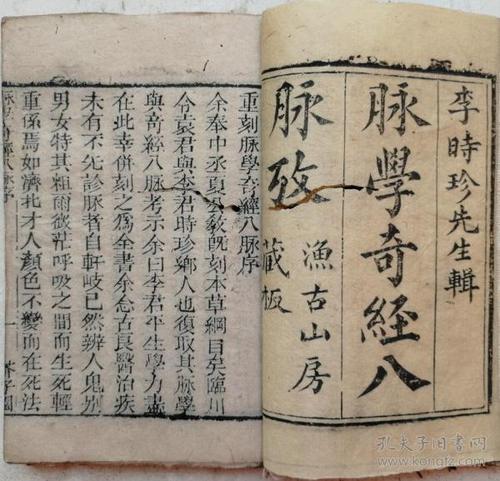 李時珍先生輯
脉學奇經八
脉攷
漁古山房
藏板
重刻脉學奇經八脉序
余奉中丞夏公教既刻本草綱目矣臨川
令袁君與李君時珍鄉人也復取其脉學
與奇經八脉考示余曰李君平生學力盡
在此幸併刻之爲全書余念古良醫治疾
未有不先診脉者自軒岐已然辨人鬼別
男女特其粗爾微茫呼吸之間而生死輕
重係焉如濟北才人顏色不變而在死法
奇經八脉序
一
芥子園
孔夫子旧书网
www.kongfz.com